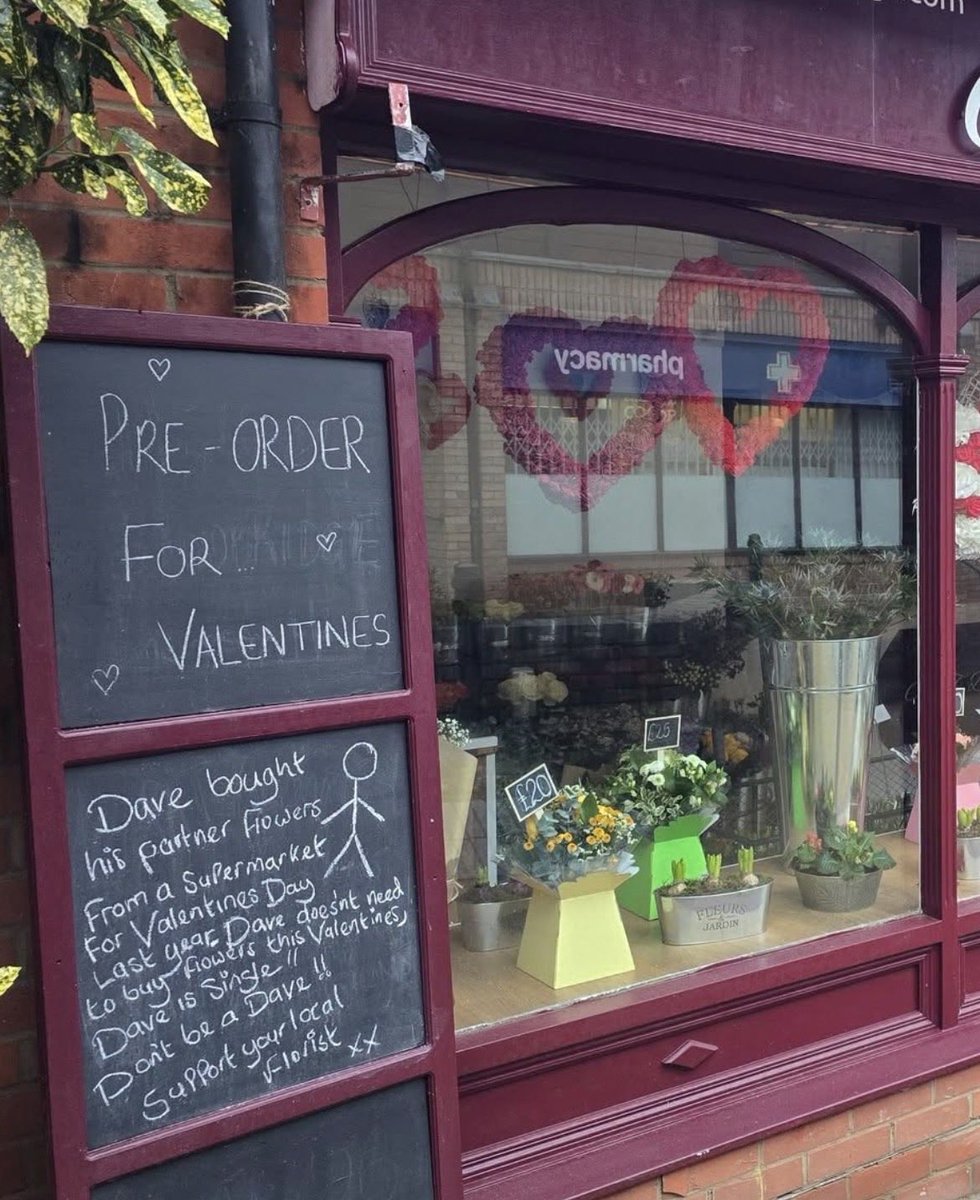 .com
PRE-ORDER
FOR
VALENTINES
Dave bought
his partner flowers
From a Supermarket
For Valentines Day
Last year. Dave doesnt need
to buy flowers this Valentines,
Dave is Single!!
Don't be a Dave!!
Support your local
Florist xx
pharmacy
£25
£20
FLEURS
&
JARDIN